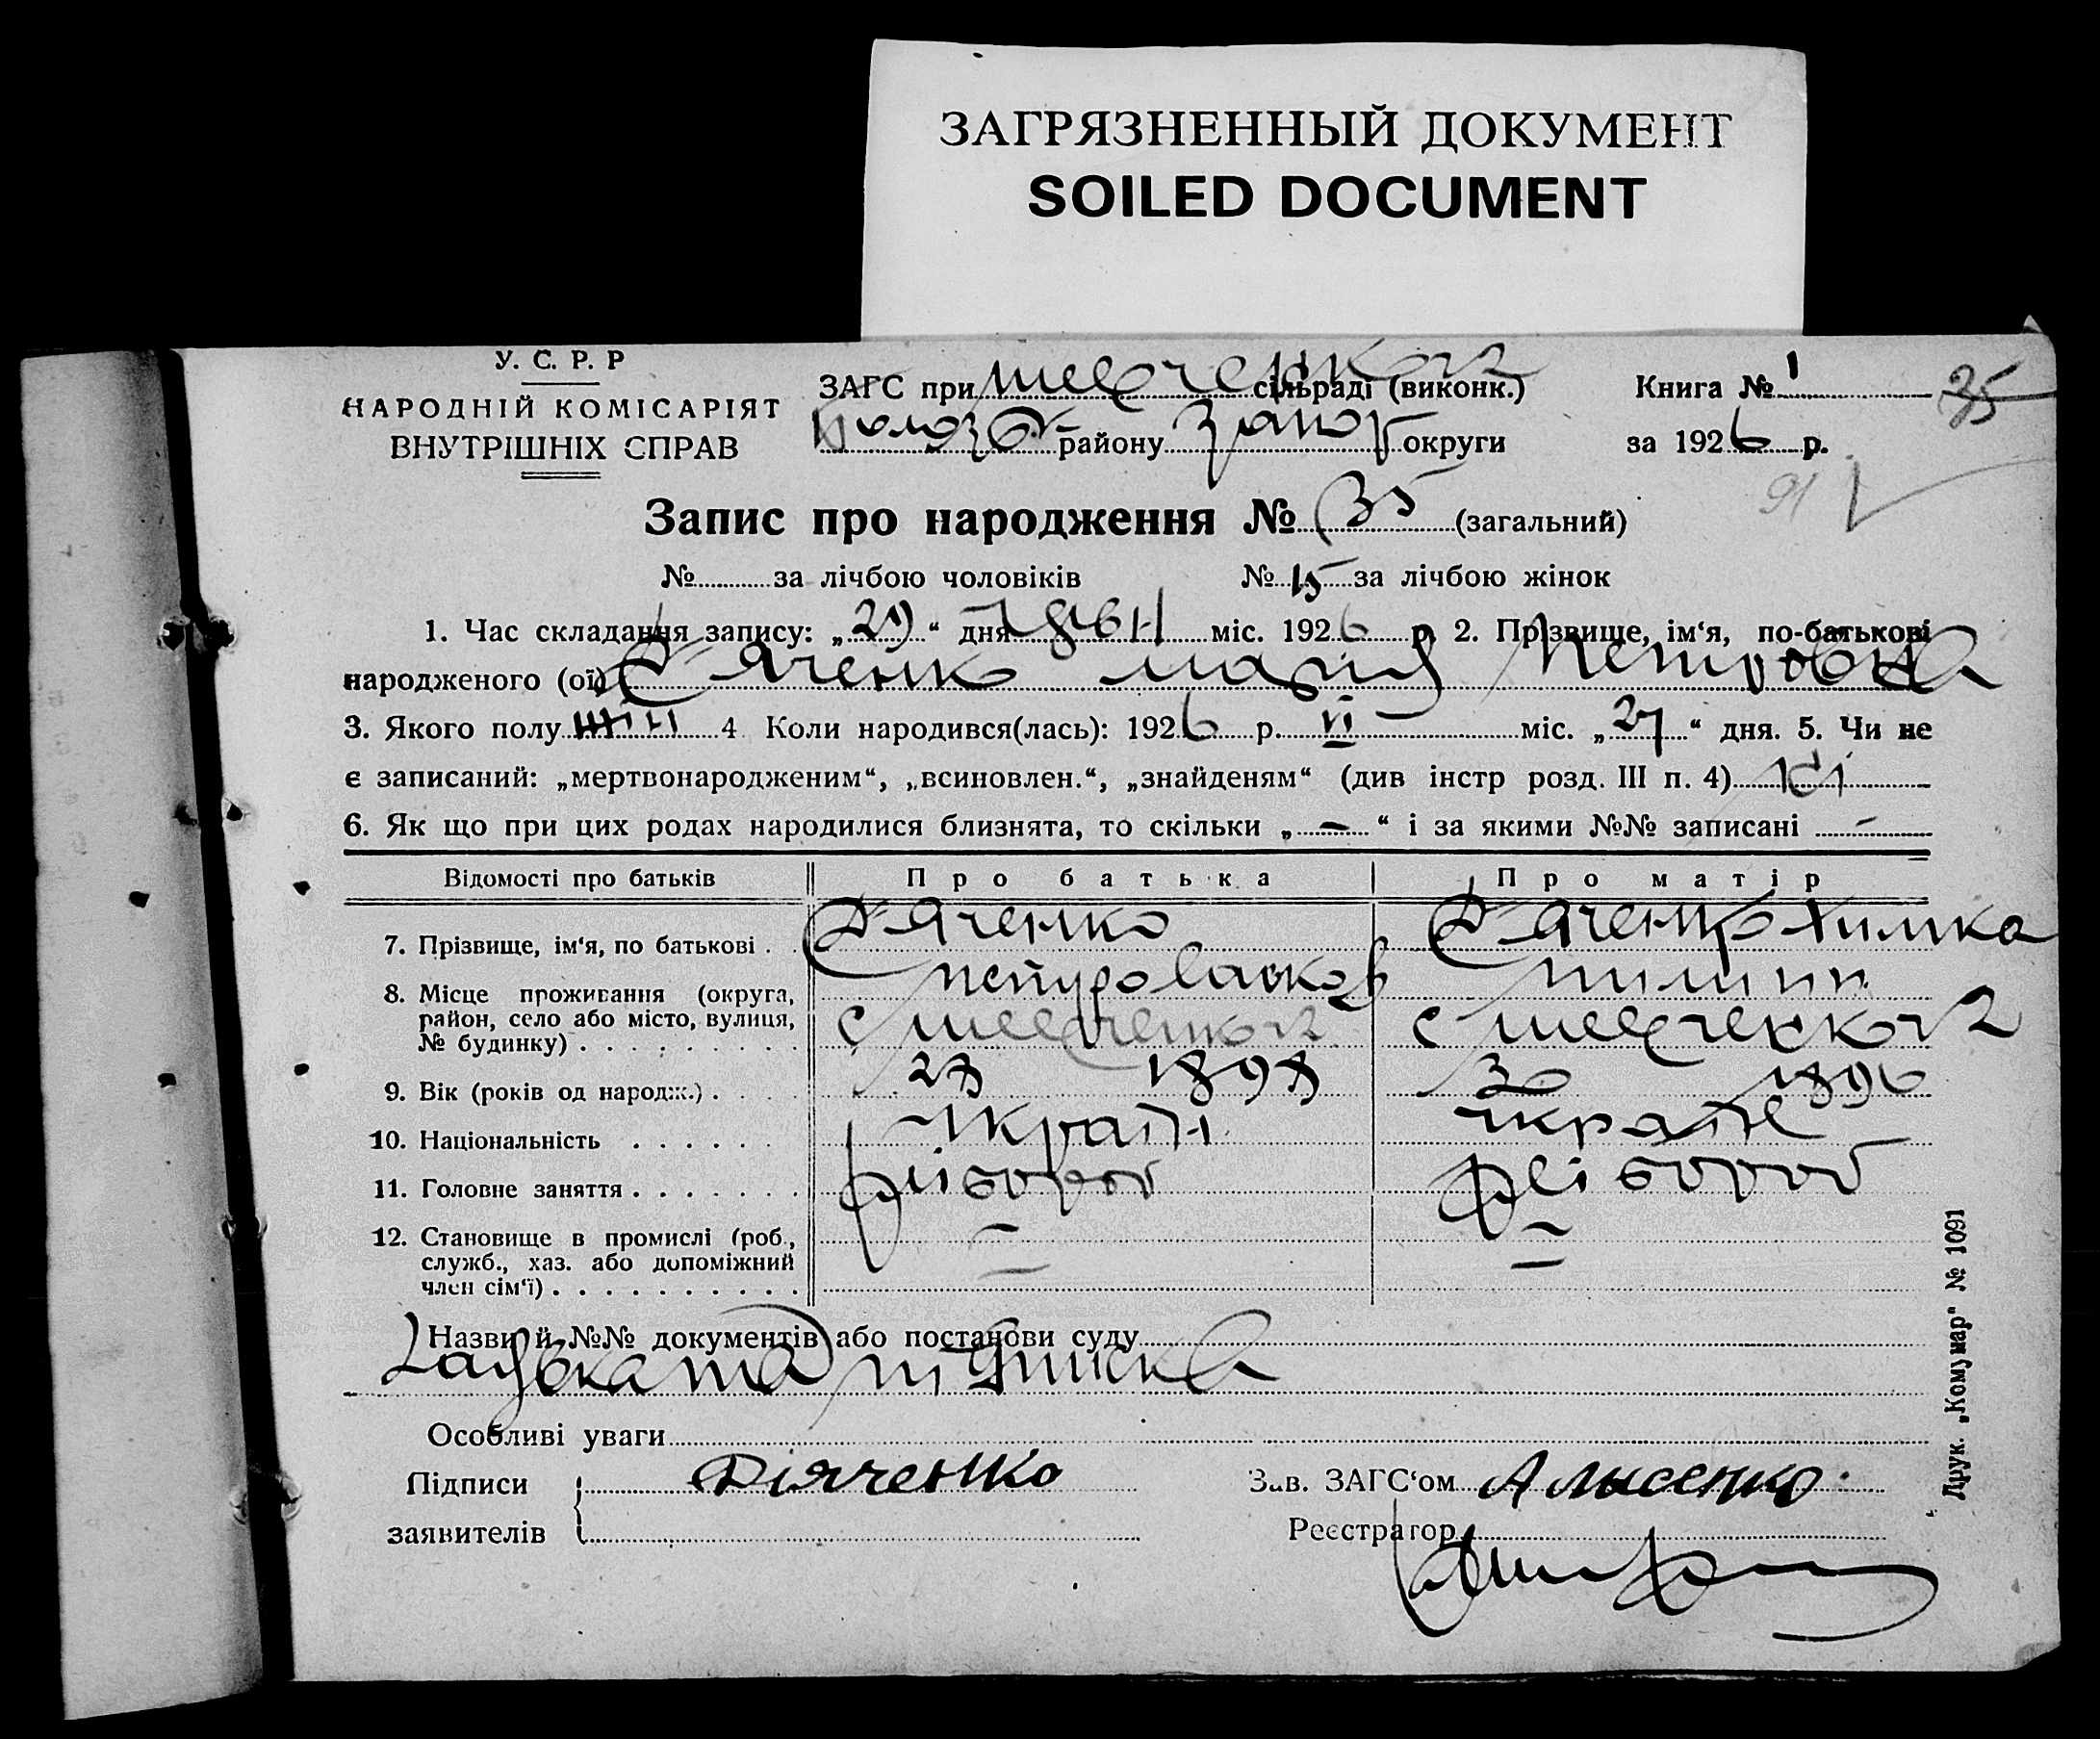 ЗАГРЯЗНЕННЫЙ ДОКУМЕНТ
SOILED DOCUMENT
У. С. Р. Р
НАРОДНІЙ КОМІСАРІЯТ
ВНУТРІШНІХ СПРАВ
ЗАГС при сільраді (виконк.)
району Запор округи
Книга № 1
за 1926 р.
35
91
Запис про народження № 35 (загальний)
№ за лічбою чоловіків № 15 за лічбою жінок
1. Час складання запису: „29“ дня міс. 1926 р. 2. Прізвище, ім‘я, по-батькові
народженого (ої) Д-яченко Марія Петровна
3. Якого полу 4 Коли народився(лась): 1926 р. VI міс. „27“ дня. 5. Чи не
є записаний: „мертвонародженим“, „всиновлен.“, „знайденям“ (див інстр розд. III п. 4) ні
6. Як що при цих родах народилися близнята, то скільки „-“ і за якими №№ записані -
Відомості про батьків Про батька Про матір
7. Прізвище, ім‘я, по батькові . . Д-яченко Д-яченко Химка
8. Місце проживання (округа, район, село або місто, вулиця, № будинку) . . . . . . . . . с с
9. Вік (років од народж.) . . . . 28 1898 30 1896
10. Національність . . . . . . Украін Украін
11. Головне заняття . . . . . . . хлібороб хлібороб
12. Становище в промислі (роб., служб., хаз. або допоміжний член сім‘ї) . . . . . . . . . . — —
Назви й №№ документів або постанови суду
підписка
Особливі уваги
Підписи заявителів Діяченко
Зав. ЗАГС‘ом А Лысенко
Реєстратор
Друк. „Комунар“ № 1091